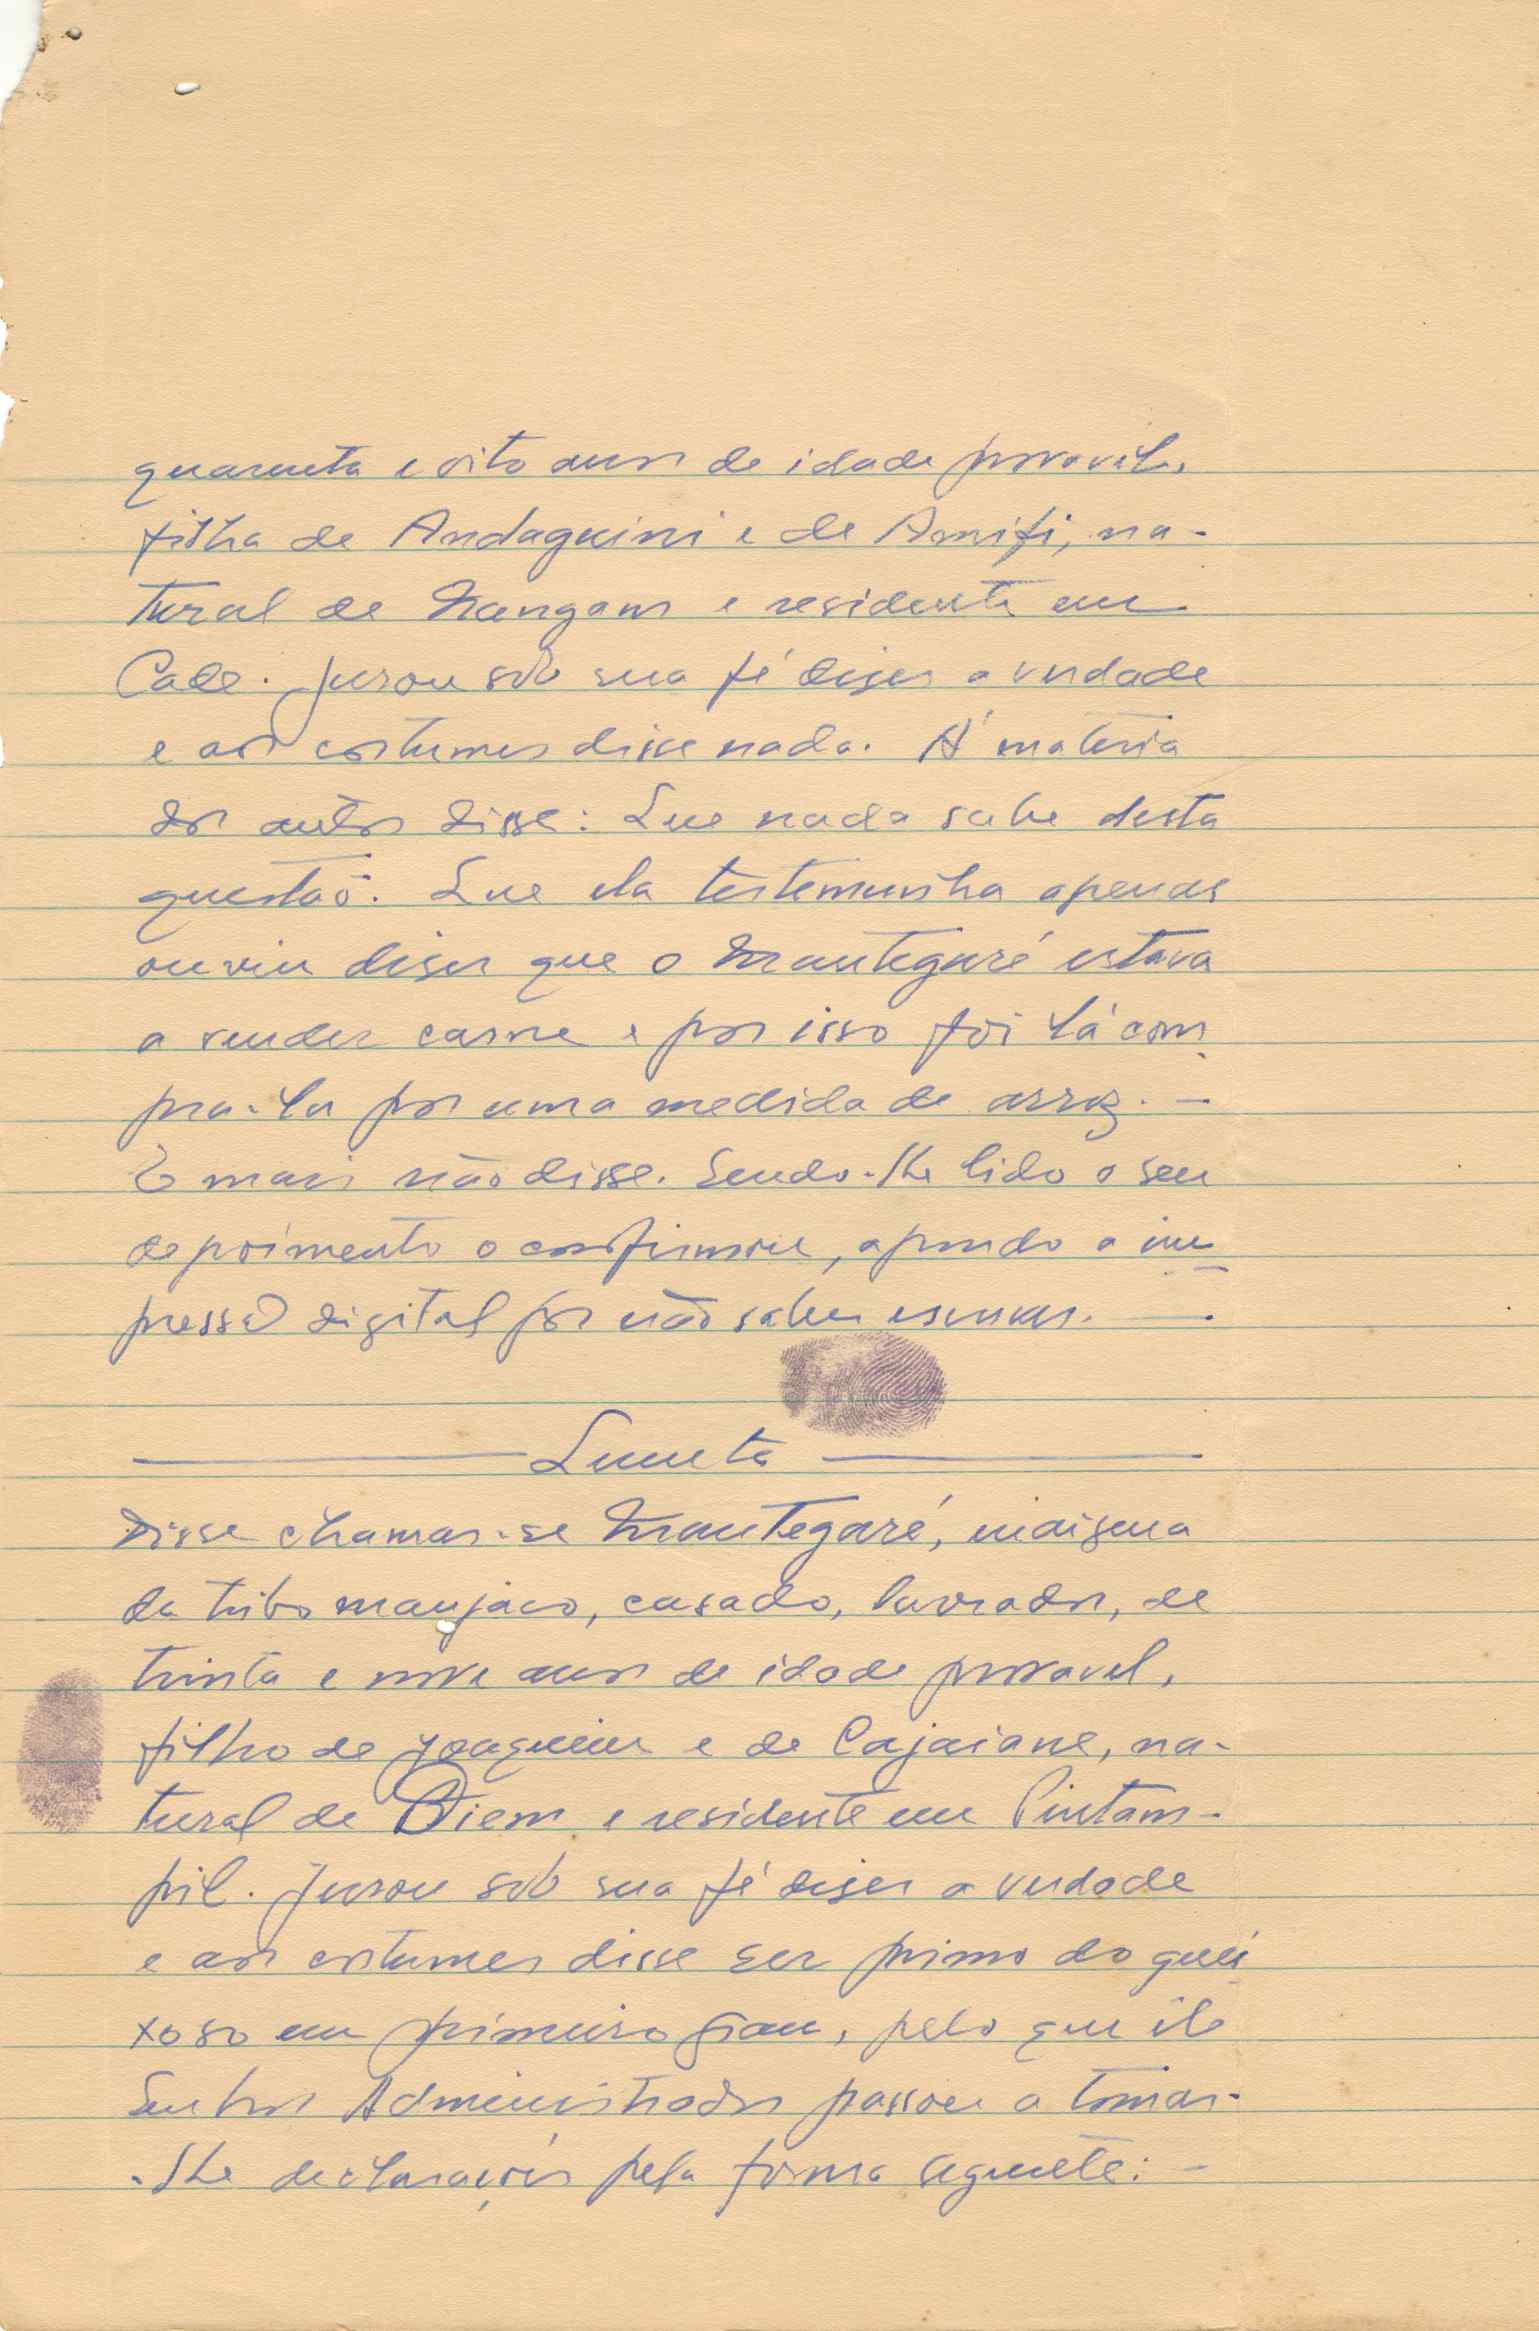 quarenta e oito anos de idade provavel,
filha de Andaguini e de Amifi, na-
tural de Nangam e residente em
Cale. Jurou sob sua fé diser a verdade
e aos costumes disse nada. Á materia
dos autos disse: Que nada sabe desta
questão. Que ela testemunha apenas
ouviu diser que o Mantegaré estava
a vender carne e por isso foi lá com-
pra-la por uma medida de arroz. —
E mais não disse. Sendo-lhe lido o seu
depoimento o confirmou, apondo a im-
pressão digital por não saber escrever. —
Quinta
Disse chamar-se Mantegaré, indigena
da tribo manjaco, casado, lavrador, de
trinta e nove anos de idade provavel,
filho de Joaquim e de Cajaiane, na-
tural de Biem e residente em Pintam-
pil. Jurou sob sua fé diser a verdade
e aos costumes disse ser primo do quei
xoso em primeiro grau, pelo que ele
Senhor Administrador passou a tomar-
-lhe declarações pela forma seguinte: -